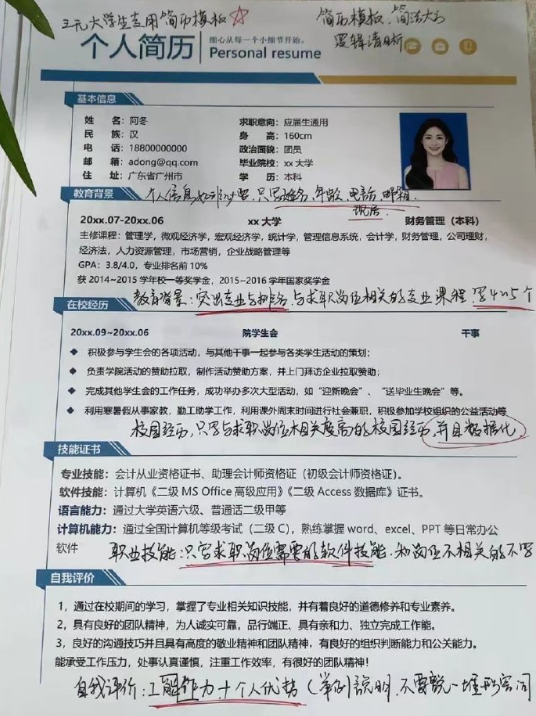 三元大学生专用简历模板☆
简历模板、简洁大方
逻辑清晰
个人简历 细心从每一个小细节开始。
Personal resume
基本信息
姓 名：阿冬 求职意向：应届生通用
民 族：汉 身 高：160cm
电 话：18800000000 政治面貌：团员
邮 箱：adong@qq.com 毕业院校：xx 大学
住 址：广东省广州市 学 历：本科
教育背景
个人信息 只写姓名、年龄、电话、邮箱
现居
20xx.07-20xx.06 xx 大学 财务管理（本科）
主修课程：管理学，微观经济学，宏观经济学，统计学，管理信息系统，会计学，财务管理，公司理财，
经济法，人力资源管理，市场营销，企业战略管理等
GPA：3.8/4.0，专业排名前 10%
获 2014~2015 学年校一等奖学金，2015~2016 学年国家奖学金
教育背景：突出专业与职务 与求职岗位相关的专业课程 写4~5个
在校经历
20xx.09~20xx.06 院学生会 干事
◆ 积极参与学生会的各项活动，与其他干事一起参与各类学生活动的策划；
◆ 负责学院活动的赞助拉取，制作活动赞助方案，并上门拜访企业拉取赞助；
◆ 完成其他学生会的工作任务，成功举办多次大型活动，如“迎新晚会”、“送毕业生晚会”等。
◆ 利用寒暑假从事家教，勤工助学工作，利用课外周末时间进行社会兼职，积极参加学校组织的公益活动等
校园经历，只写与求职岗位相关度高的校园经历，并且数据化
技能证书
专业技能：会计从业资格证书、助理会计师资格证（初级会计师资格证）。
软件技能：计算机《二级 MS Office 高级应用》《二级 Access 数据库》证书。
语言能力：通过大学英语六级、普通话二级甲等
计算机能力：通过全国计算机等级考试（二级 C），熟练掌握 word、excel、PPT 等日常办公
软件
职业技能：只写求职岗位需要的软件技能，和岗位不相关的不写
自我评价
1，通过在校期间的学习，掌握了专业相关知识技能，并有着良好的道德修养和专业素养。
2，具有良好的团队精神，为人诚实可靠，品行端正、具有亲和力、独立完成工作能。
3，良好的沟通技巧并且具有高度的敬业精神和团队精神，有良好的组织判断能力和公关能力。
能承受工作压力，处事认真谨慎，注重工作效率，有很好的团队精神！
自我评价：工作能力+个人优势（举例）说明，不要写一堆形容词